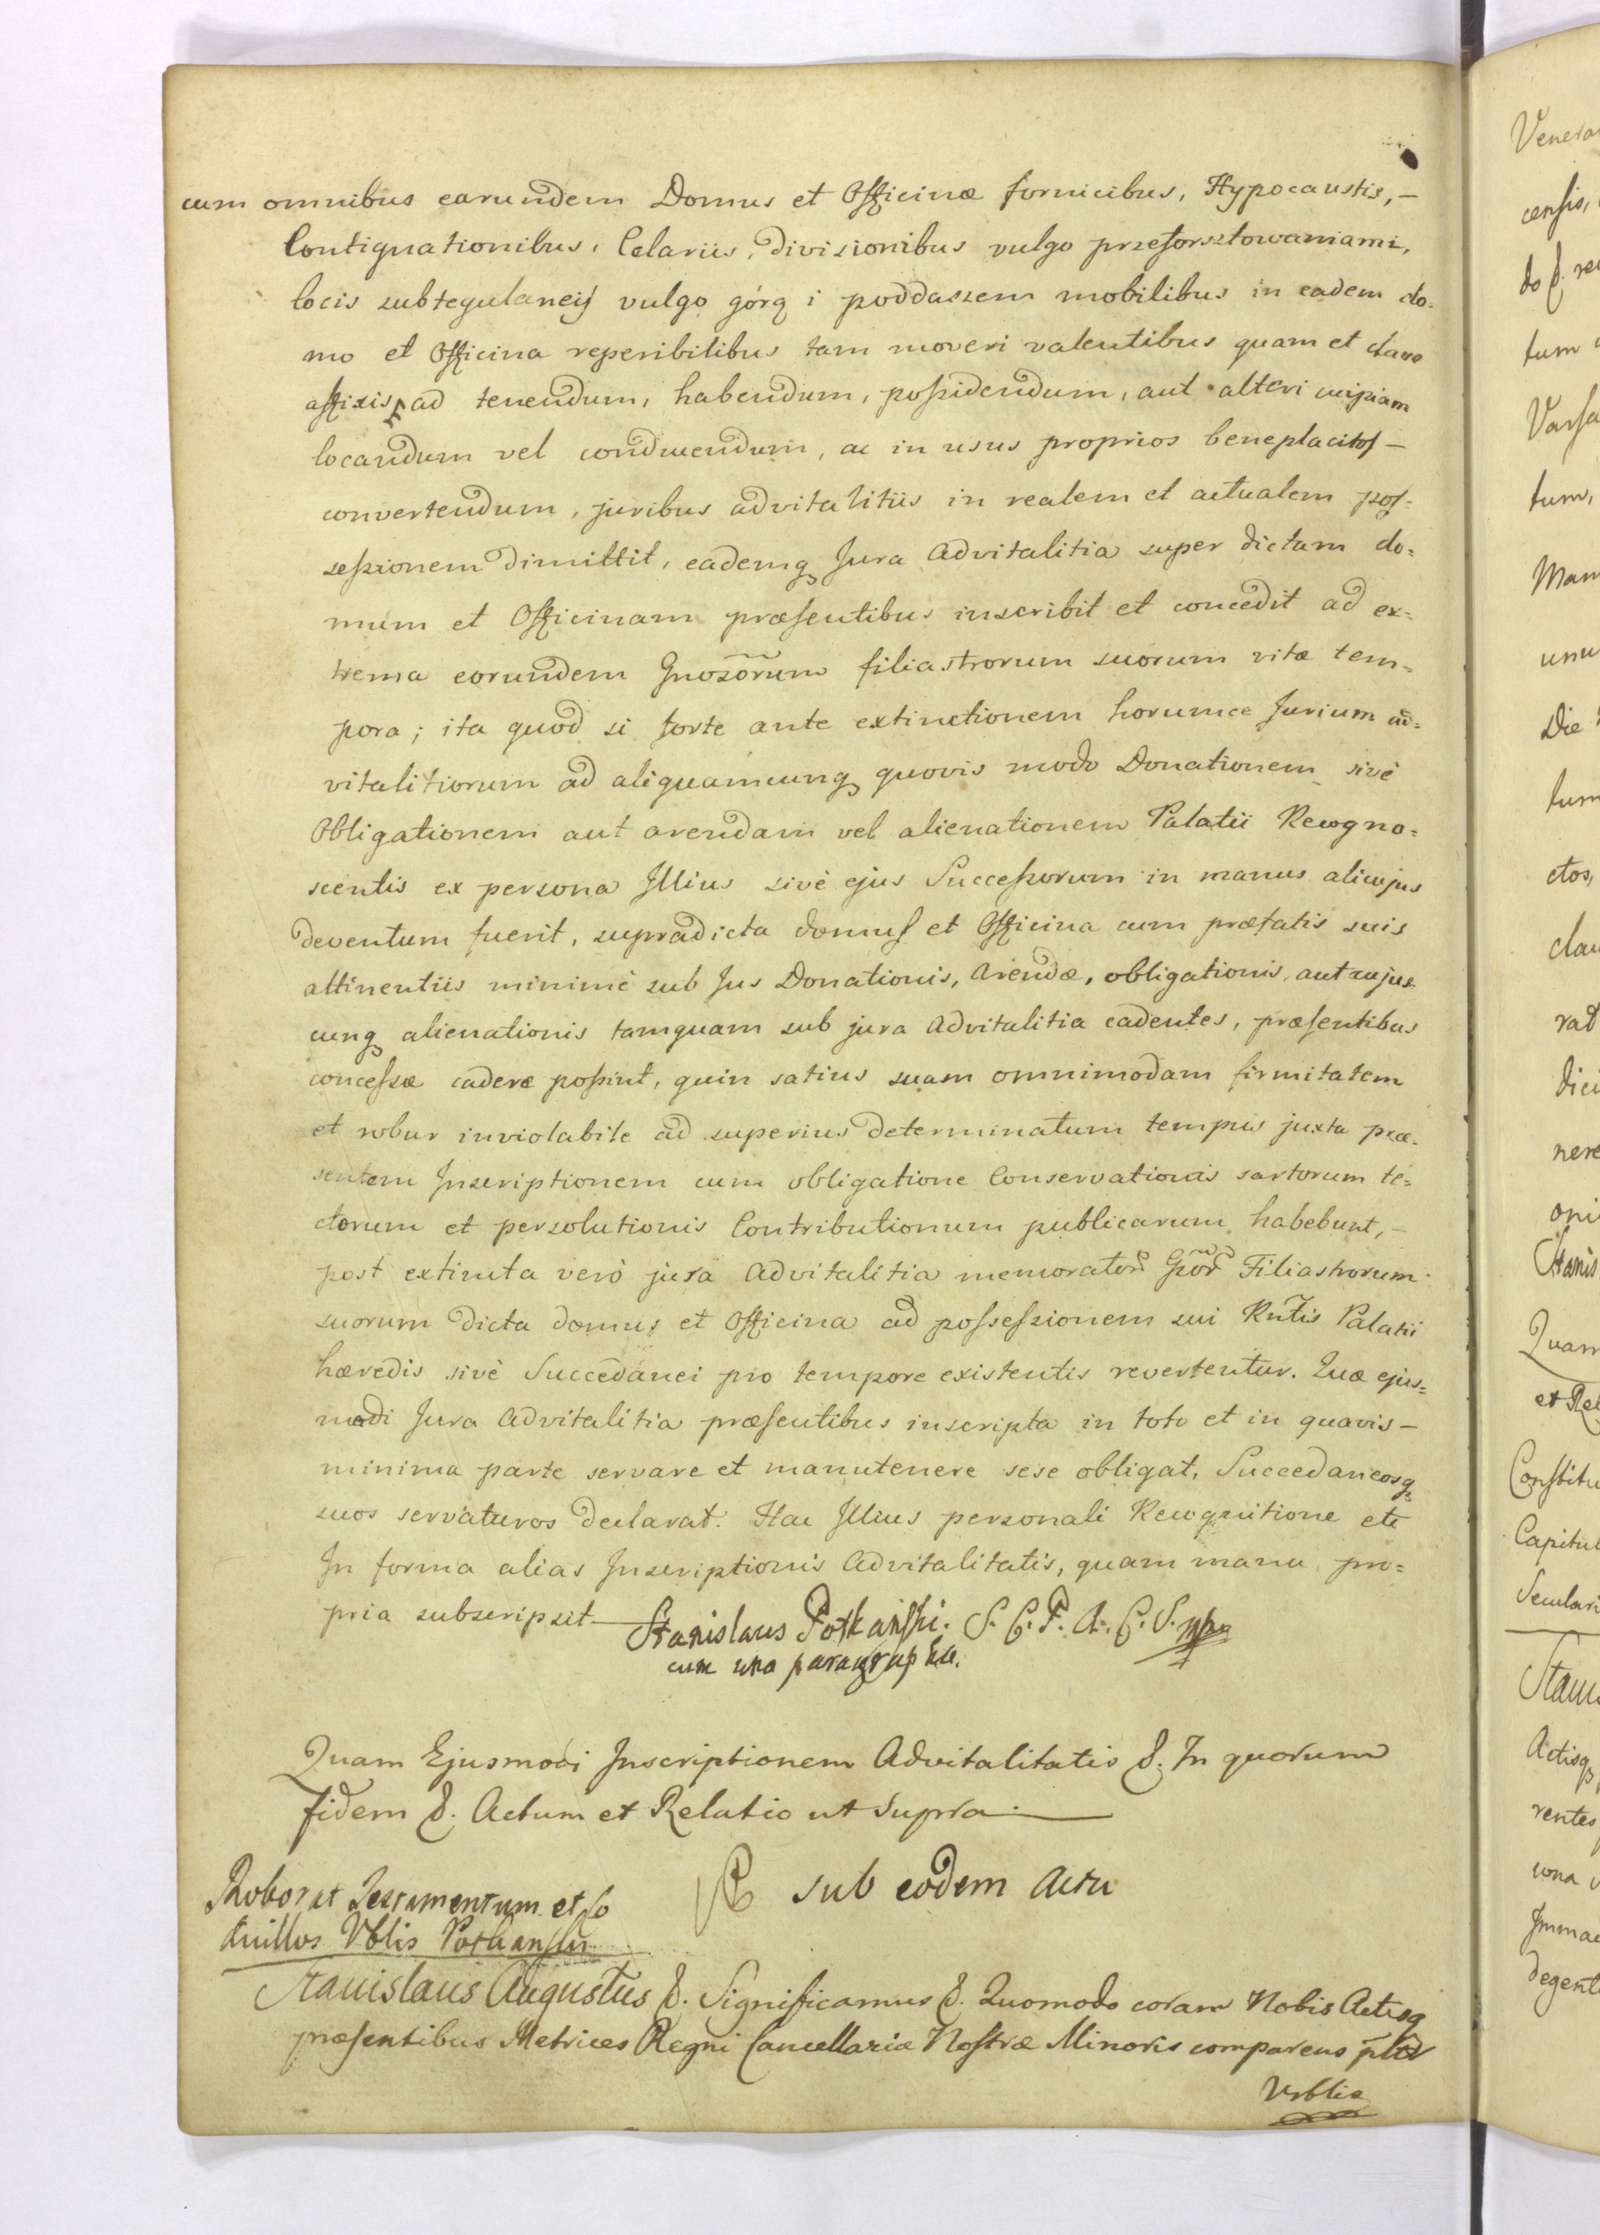 cum omnibus earundem Domus et Officinæ fornicibus, Hypocaustis, –
Contignationibus, Celariis, divisionibus vulgo przeforsztowaniami,
locis subtegulaneij vulgo górą i poddaszem mobilibus in eadem do-
mo et Officina reperibilibus tam moveri valentibus quam et clavo
affixis, ad tenendum, habendum, possidendum, aut alteri cuipiam
locandum vel conducendum, ac in usus proprios beneplacitos –
convertendum, juribus advitalitiis in realem et actualem pos=
sessionem dimittit, eademq Jura Advitalitia super dictam do=
mum et Officinam præsentibus inscribit et concedit ad ex=
trema eorundem Gnosorum filiastrorum suorum vitæ tem=
pora; ita quod si forte ante extinctionem horumce Jurium ad=
vitalitiorum ad aliquamcunq quovis modo Donationem sivè
Obligationem aut arendam vel alienationem Palatii Recogno=
scentis ex persona Illius sivè ejus Successorum in manus alicujus
deventum fuerit, supradicta domus et Officina cum præfatis suis
attinentiis minimè sub Jus Donationis, Arendæ, obligationis, aut cujus=
cunq alienationis tamquam sub jura Advitalitia cadentes, præsentibus
concessæ cadere possint, quin satius suam omnimodam firmitatem
et robur inviolabile ad superius determinatum tempus juxta præ=
sentem Inscriptionem cum obligatione Conservationis sartorum te=
ctorum et persolutionis Contributionum publicarum habebunt, –
post extincta verò jura Advitalitia memorator Gnor Filiastrorum
suorum dicta domus et Officina ad possessionem sui Rntis Palatii
hæredis sivè Succedanei pro tempore existentis revertentur. Quæ ejus=
modi Jura Advitalitia præsentibus inscripta in toto et in quavis –
minima parte servare et manutenere sese obligat, Succedaneosq
suos servaturos declarat. Hac Illius personali Recognitione etc
In forma alias Inscriptionis Advitalitatis, quam manu pro=
pria subscripsit Stanislaus Potkański. S. C. P. A. C. S. mpu
cum una paragraphka.
Quam Ejusmodi Inscriptionem Advitalitatis &. In quorum
fidem &. Actum et Relatio ut supra
Roborat Testamentum et Co
dicillos Vblis Potkański
sub eodem Actu
Stanislaus Augustus &. Significamus &. Quomodo coram Nobis Actisq
præsentibus Metrices Regni Cancellariæ Nostræ Minoris comparens pltr
Vrblis